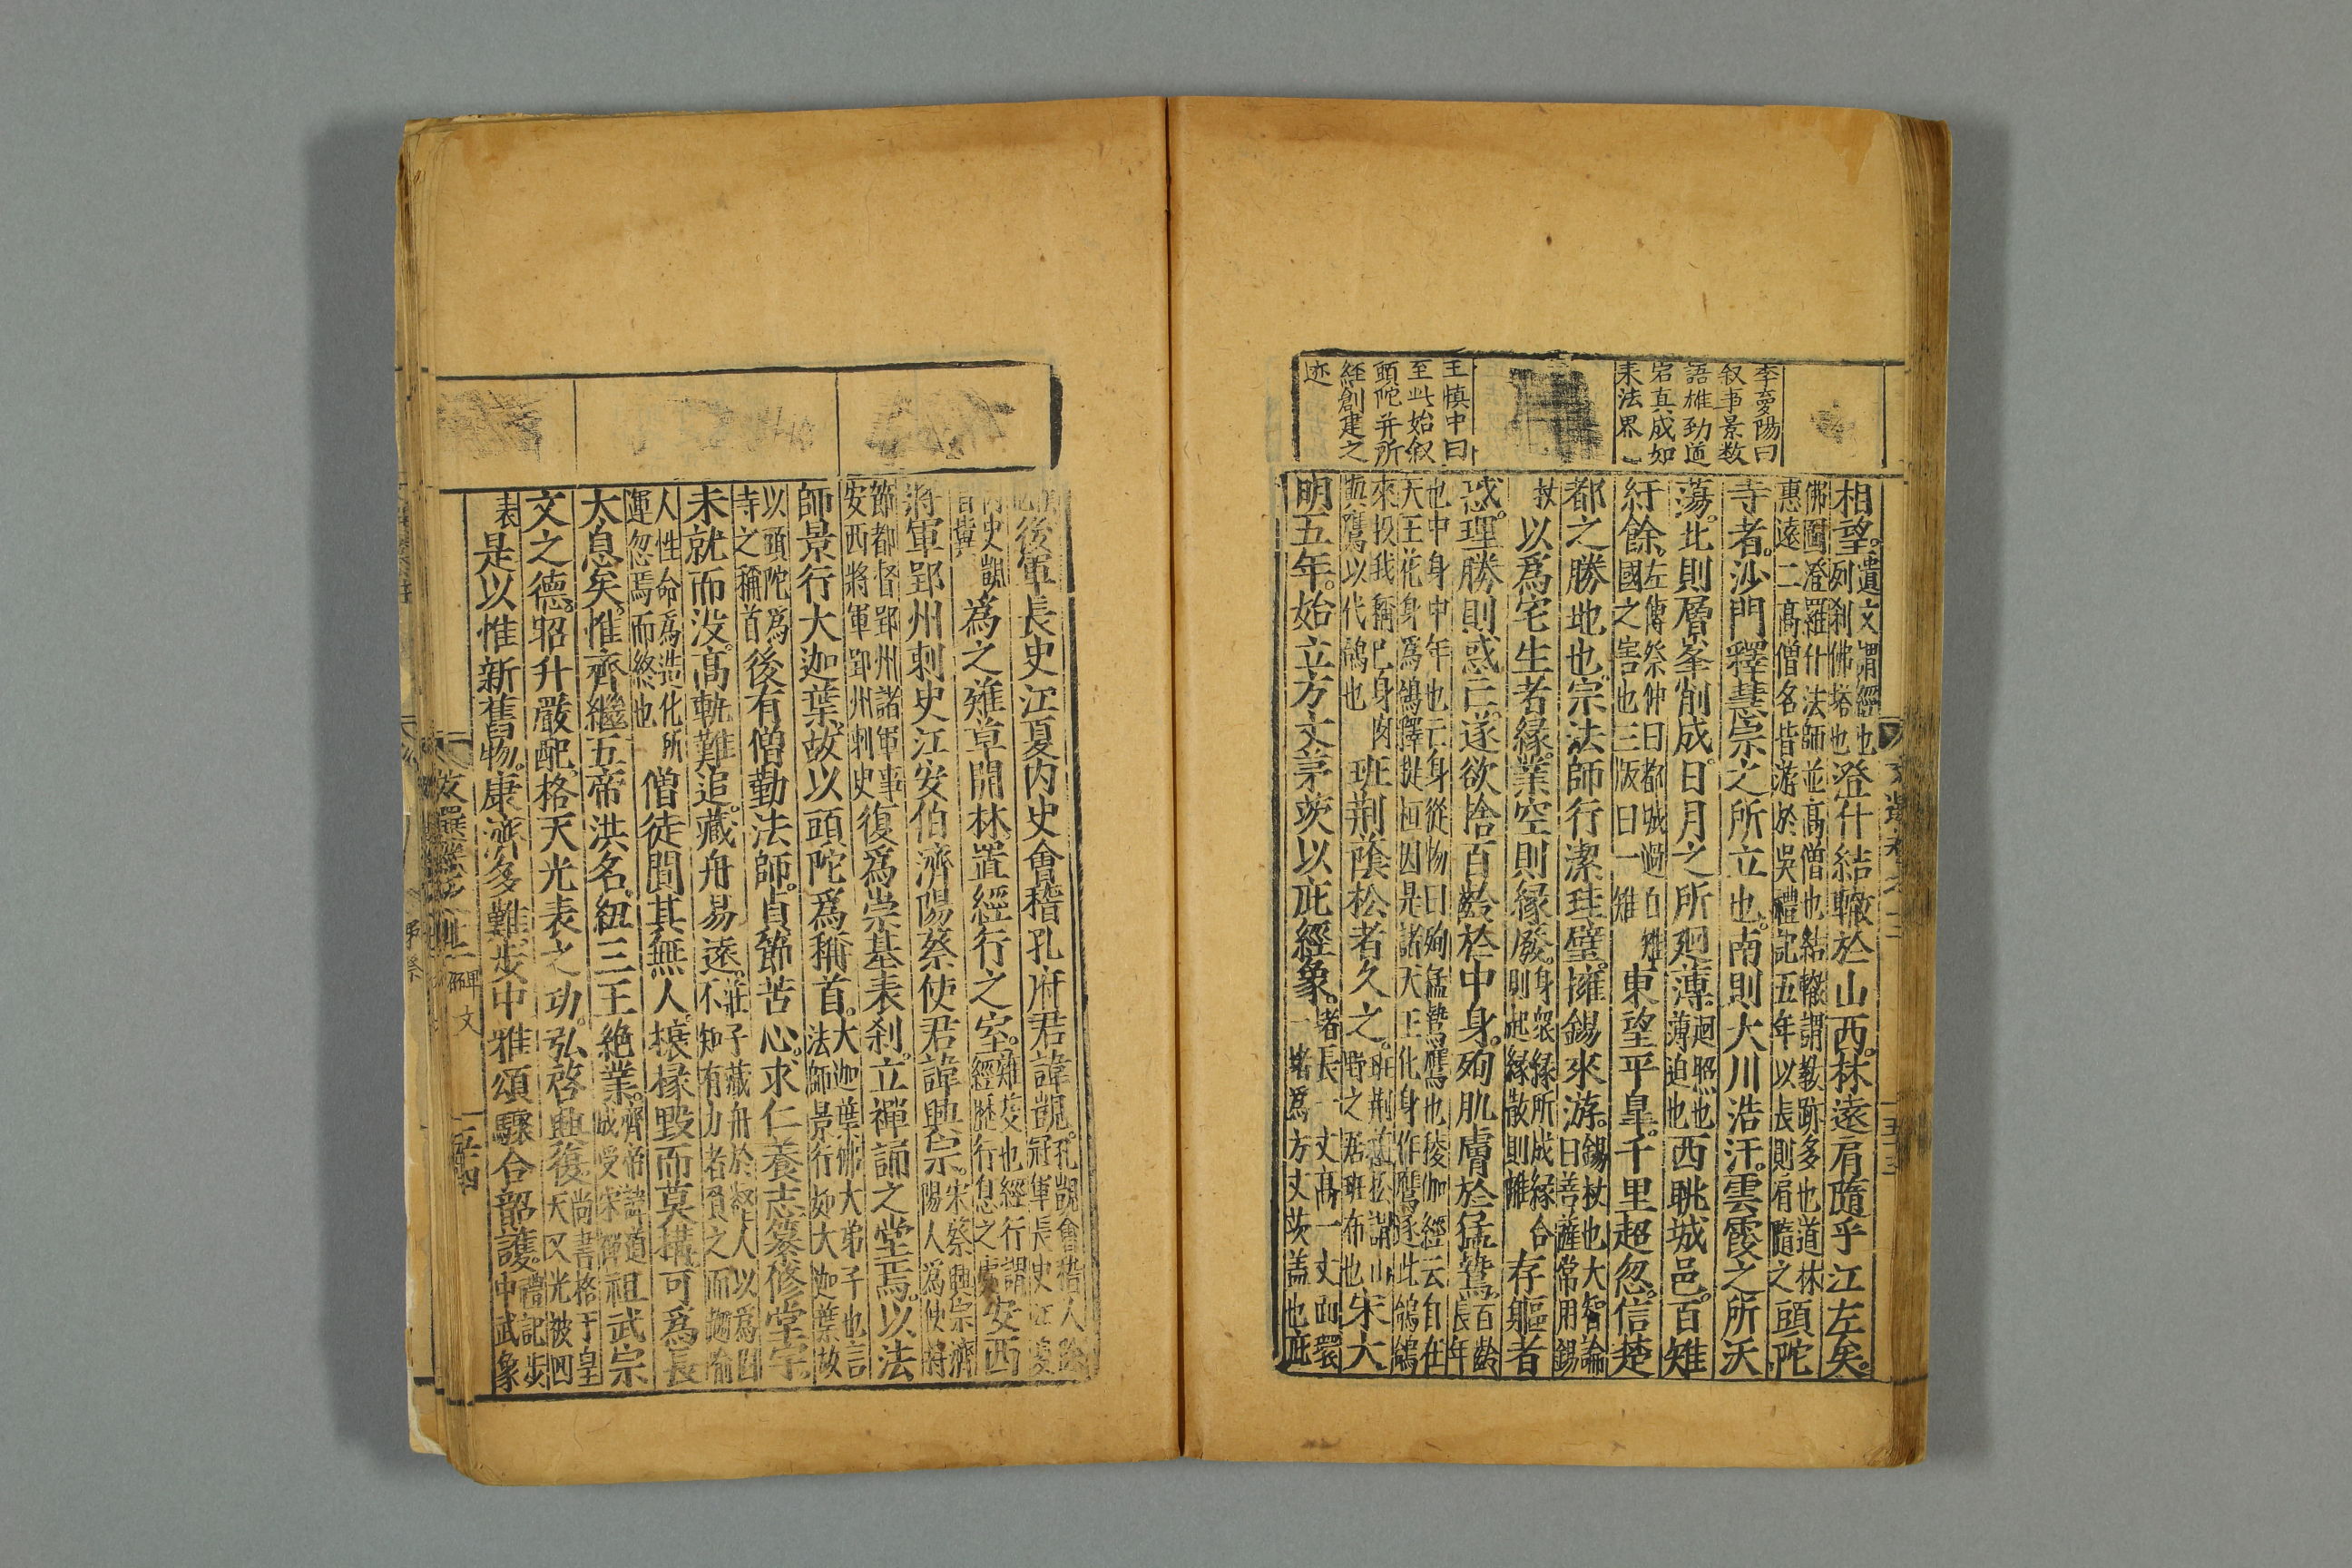 李憂陽曰
叙事景數
語雄勁逼
宕真成如
來法界
王慎中曰
至此始叙
頭陀并所
經創建之
迹
相望遺文謂經也列刹佛塔也澄什結轍於山西林遠肩隨乎江左矣
佛圖澄羅什法師並高僧也結轍謂教跡多也道林惠遠二高僧名皆游於吳禮記五年以長則肩隨之頭陀
寺者沙門釋慧宗之所立也南則大川浩汗雲霞之所沃
蕩北則層峯削成日月之所廻薄迴照也薄迫也西眺城邑百雉
紆餘左傳祭仲曰都城過百雉國之害也三版曰一雉東望平皐千里超忽信楚
都之勝地也宗法師行潔珪璧擁錫來游錫杖也大智論曰菩薩常用錫
杖以爲宅生者緣業空則緣廢身衆緣所成緣合則起緣散則離存軀者
惑理勝則惑亡遂欲捨百齡於中身殉肌膚於猛鷙百齡長年
也中身中年也亡身從物曰殉猛鷙鷹也楞伽經云自在天王化身爲鴿釋提桓因是諸天王化身作鷹逐此鴿鴿
來投我稱己身肉與鷹以代鴿也班荆蔭松者久之班荆蔭松謂山野之居班布也宋大
明五年始立方丈茅茨以庇經象堵長一丈高一丈面環一堵爲方丈茨盖也庇
後軍長史江夏内史會稽孔府君諱覬孔覬會稽人除冠軍長史江夏
内史覬音冀爲之薙草開林置經行之室薙芟也經行謂經歷行息之處安西
將軍郢州刺史江安伯濟陽蔡使君諱興宗宋蔡興宗濟陽人爲使持
節都督郢州諸軍事安西將軍郢州刺史復爲崇基表刹立禪誦之堂焉以法
師景行大迦葉故以頭陀爲稱首大迦葉佛大弟子也言法師景行如大迦葉故
以頭陀爲寺之稱首後有僧勤法師貞節苦心求仁養志纂修堂宇
未就而没高軌難追藏舟易遠莊子藏舟於壑人以爲固不知有力者負之而趨喻
人性命爲造化所運忽焉而終也僧徒闃其無人榱椽毀而莫構可爲長
大息矣惟齊繼五帝洪名紐三王絶業齊帝諱道成受宋禪祖武宗
文之德昭升嚴配格天光表之功弘啓興復尚書格于皇天又光被四
表是以惟新舊物康濟多難步中雅頌驟合韶護禮記步中武象
文選卷之十二
碑文
五十四